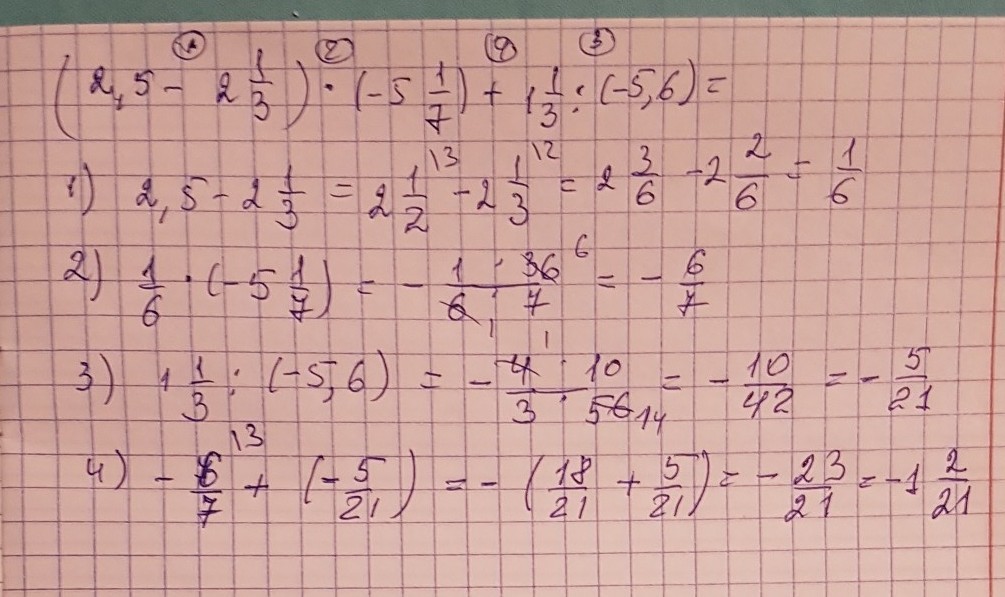 ① ② ④ ③
(2,5 - 2 1/3) · (-5 1/7) + 1 1/3 : (-5,6) =
1) 2,5 - 2 1/3 = 2 1/2 \3 - 2 1/3 \2 = 2 3/6 - 2 2/6 = 1/6
2) 1/6 · (-5 1/7) = - 1 · 36 6 / 6 1 · 7 = - 6/7
3) 1 1/3 : (-5,6) = - 4 1 · 10 / 3 · 56 14 = - 10/42 = - 5/21
4) - 6/7 \3 + (- 5/21) = - (18/21 + 5/21) = - 23/21 = -1 2/21